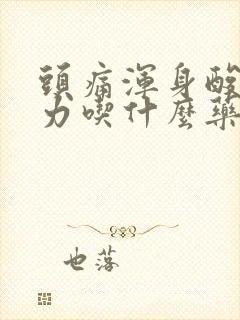 頭痛渾身酸
力喫什麼藥
也落